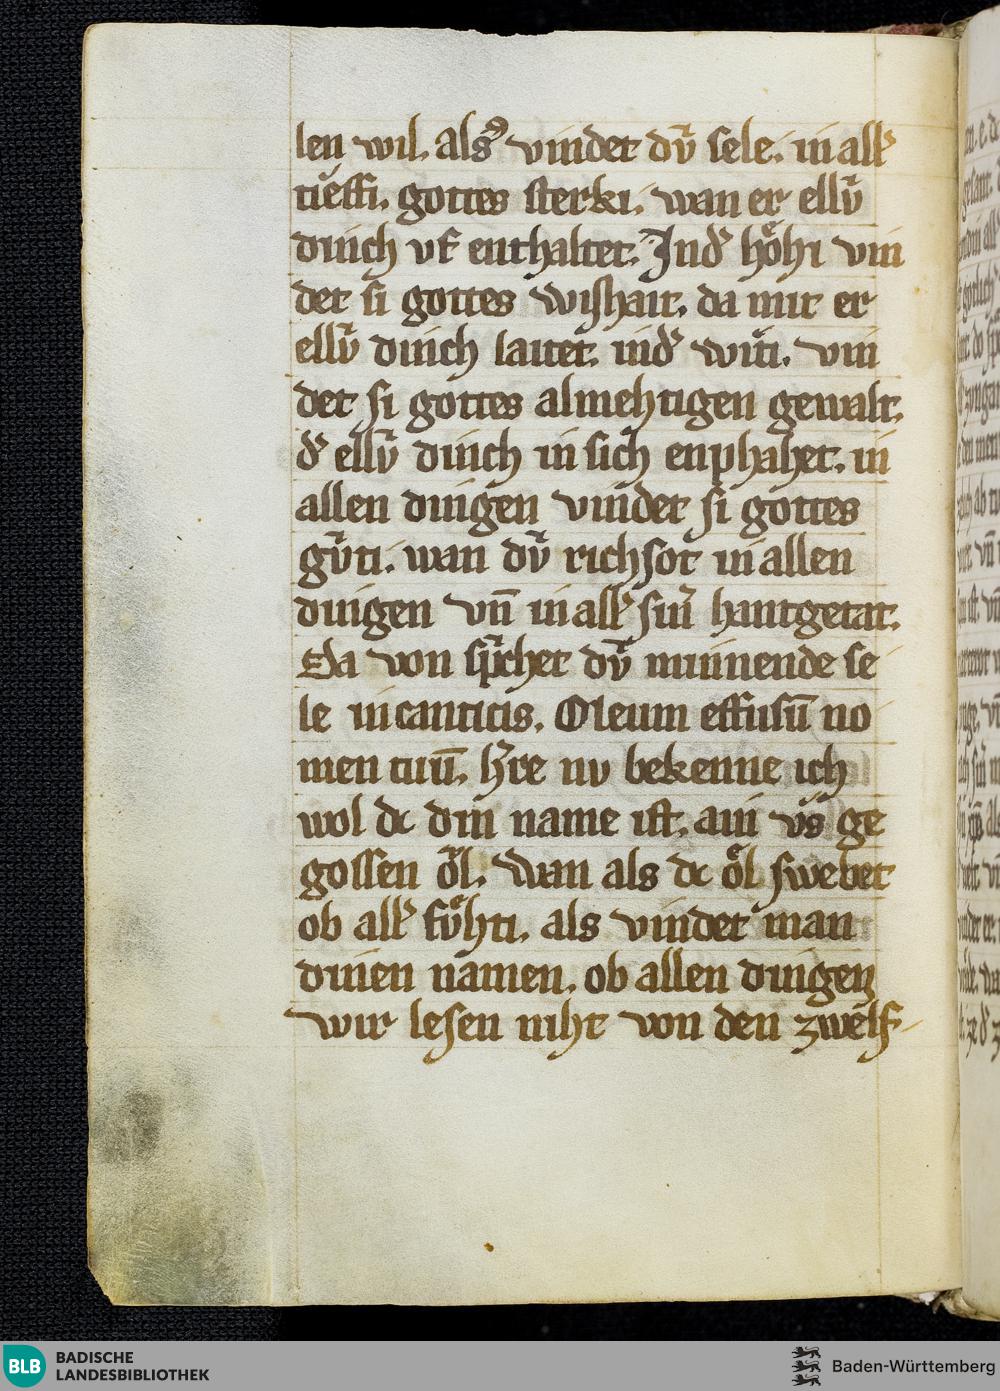 len wil. als9 vindet dv̄ sele. in all᾽
tieffi. gottes sterki. wan er ellv̄
dinch vf enthaltet. Ind᾽ hoͤhi vin
det si gottes wishait. da mit er
ellv̄ dinch laitet. ind᾽ witi. vin
det si gottes almehtigen gewalt.
d᾽ ellv̄ dinch in sich enphahet. in
allen dingen vindet si gottes
gv̄ti. wan dv̄ richsot in allen
dingen vn̄ in all᾽ sin᾽ hantgetat.
Da von sp᾽chet dv̄ minnende se
le in canticis. Oleum effusū no
men tuū. h᾽re nv bekenne ich
wol dc din name ist. ain vs ge
gossen oͤl. Wan als dc oͤl swebet
ob all᾽ fvͤhti. als vindet man
dinen namen. ob allen dingen
wir lesen niht von den zwelf
BLB
BADISCHE
LANDESBIBLIOTHEK
Baden-Württemberg